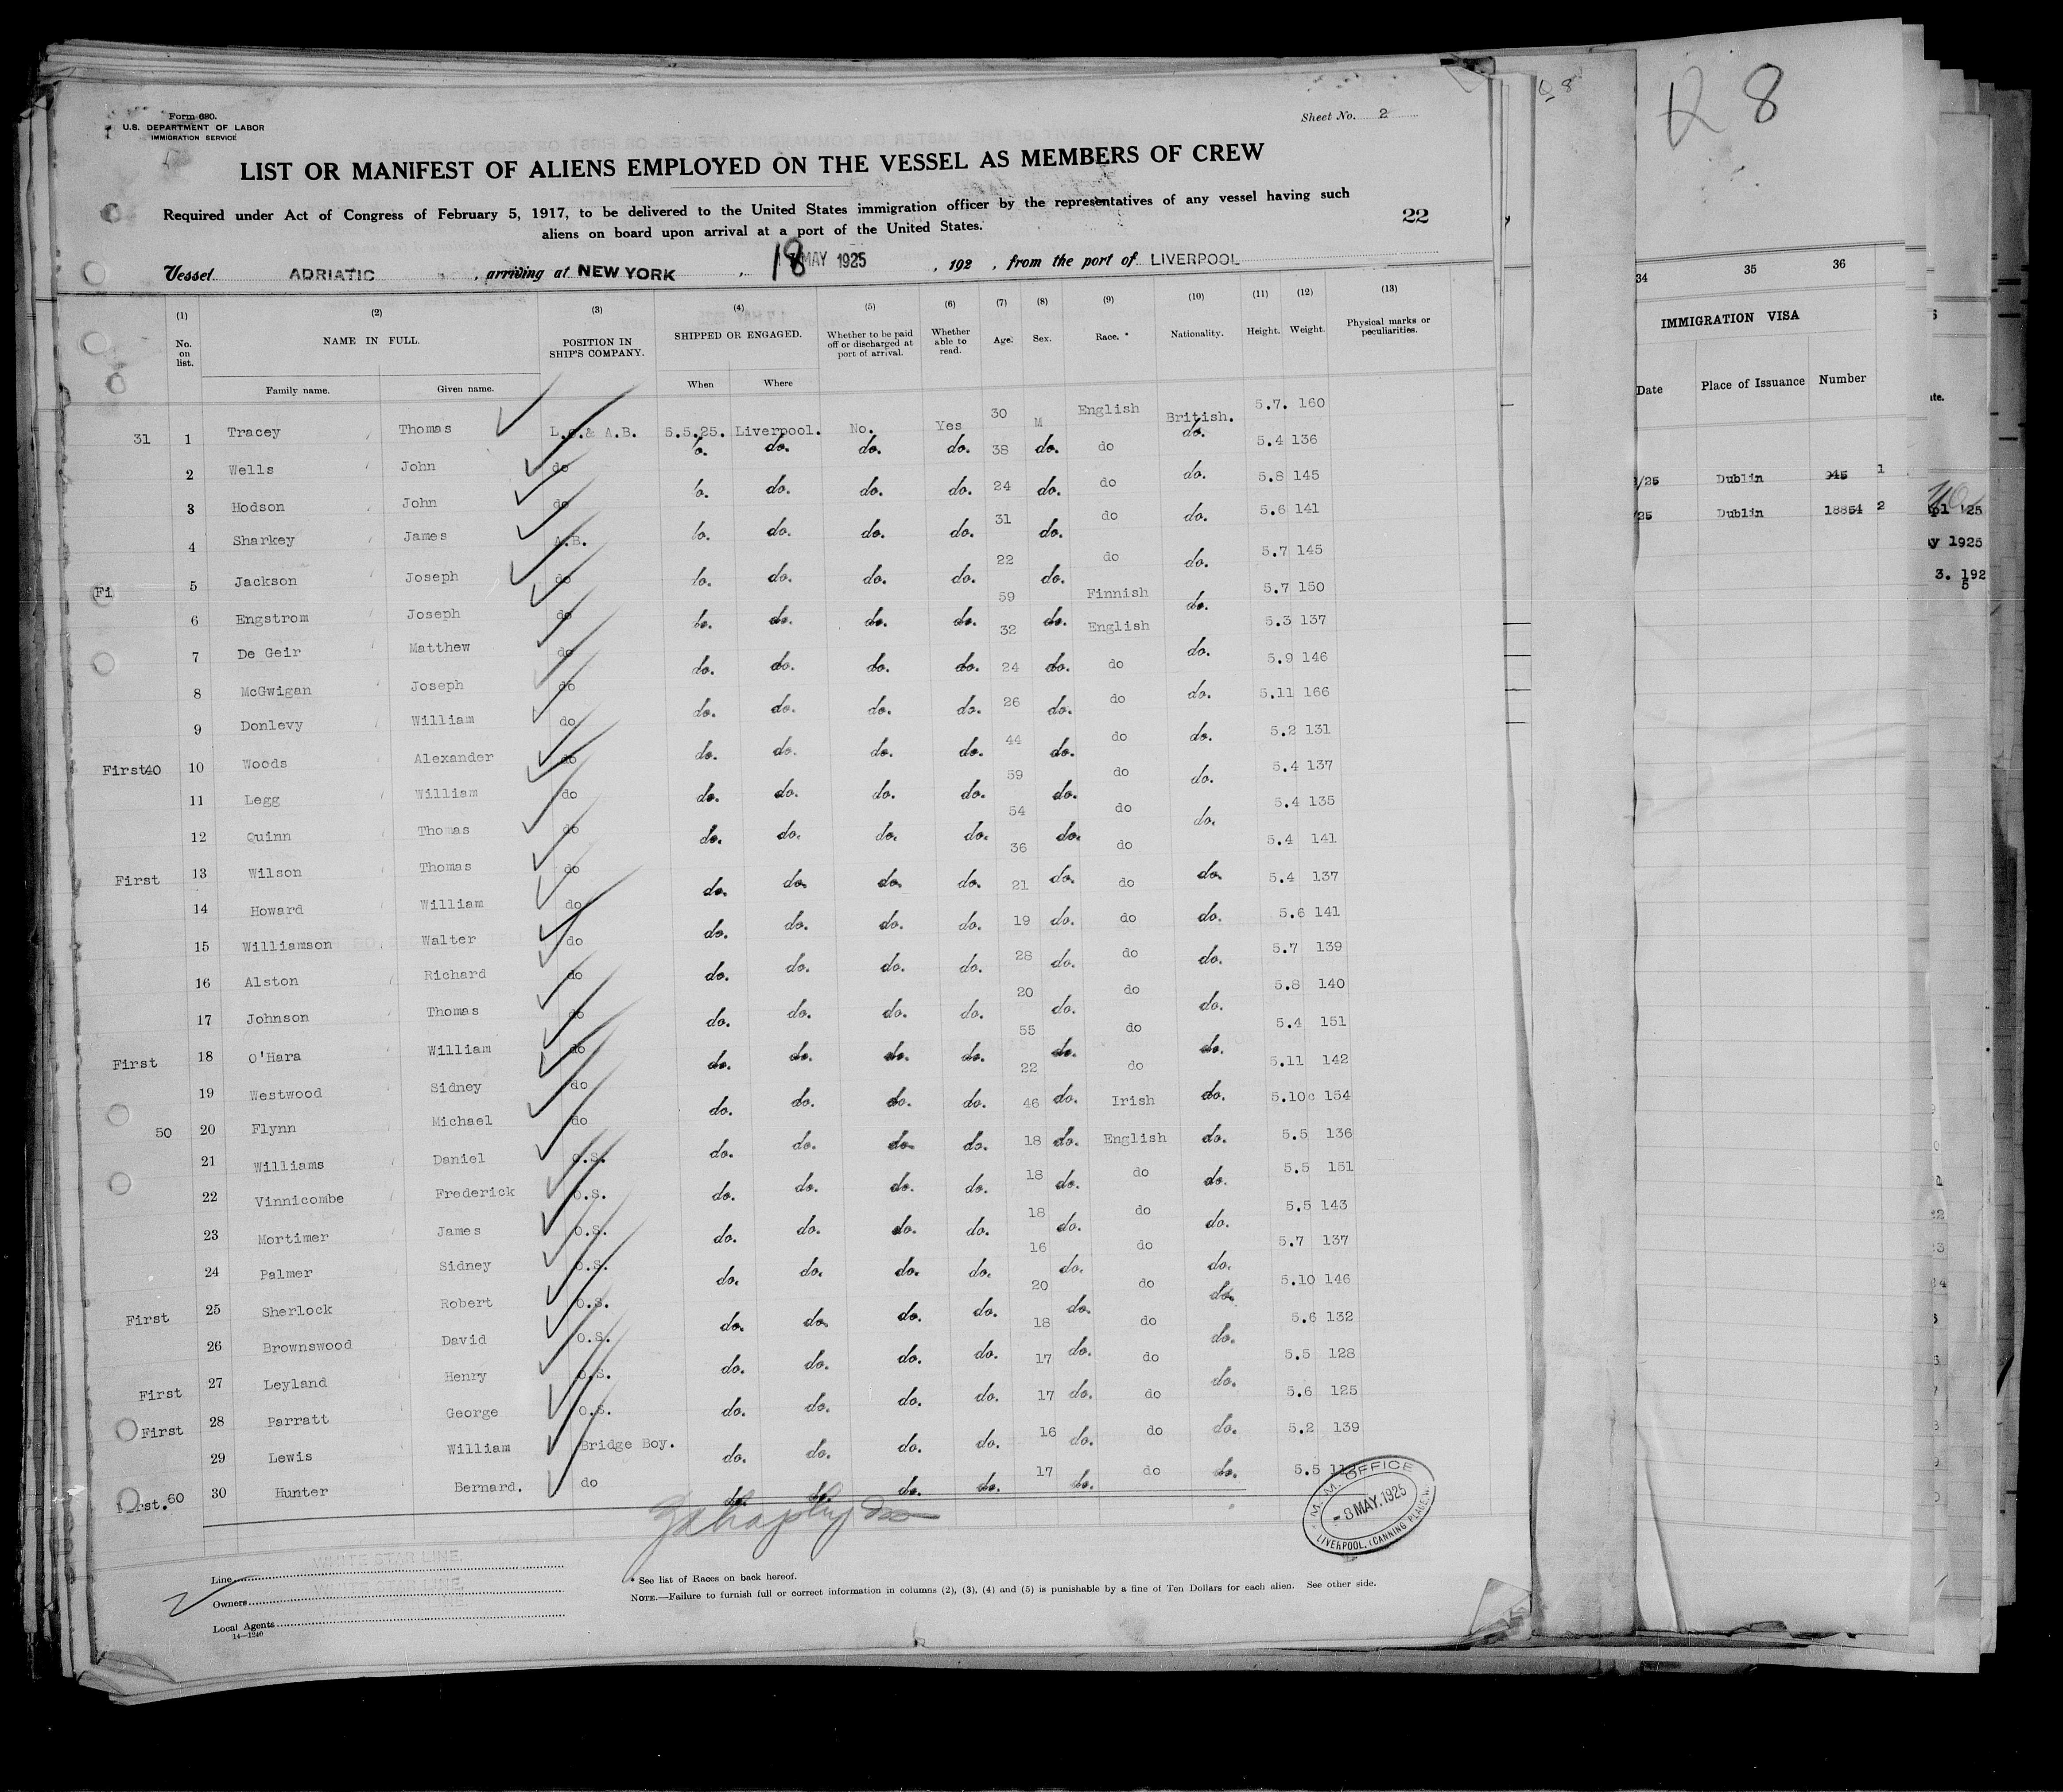 Form 680.
U.S. DEPARTMENT OF LABOR
IMMIGRATION SERVICE
Sheet No. 2
LIST OR MANIFEST OF ALIENS EMPLOYED ON THE VESSEL AS MEMBERS OF CREW
Required under Act of Congress of February 5, 1917, to be delivered to the United States immigration officer by the representatives of any vessel having such
aliens on board upon arrival at a port of the United States.
22
Vessel ADRIATIC, arriving at NEW YORK, 18 MAY 1925, 192 , from the port of LIVERPOOL
(1) (2) (3) (4) (5) (6) (7) (8) (9) (10) (11) (12) (13)
No. on list. NAME IN FULL. POSITION IN SHIP'S COMPANY. SHIPPED OR ENGAGED. Whether to be paid off or discharged at port of arrival. Whether able to read. Age. Sex. Race. * Nationality. Height. Weight. Physical marks or peculiarities.
Family name. Given name. When Where
31 1 Tracey Thomas L.O.& A.B. 5.5.25. Liverpool. No. Yes 30 M English British. 5.7. 160
2 Wells John do do. do. do. do. 38 do. do do. 5.4 136
3 Hodson John do do. do. do. do. 24 do. do do. 5.8 145
4 Sharkey James A.B. do. do. do. do. 31 do. do do. 5.6 141
Fi 5 Jackson Joseph do do. do. do. do. 22 do. do do. 5.7 145
6 Engstrom Joseph do do. do. do. do. 59 do. Finnish do. 5.7 150
7 De Geir Matthew do do. do. do. do. 32 do. English do. 5.3 137
8 McGwigan Joseph do do. do. do. do. 24 do. do do. 5.9 146
9 Donlevy William do do. do. do. do. 26 do. do do. 5.11 166
First 40 10 Woods Alexander do do. do. do. do. 44 do. do do. 5.2 131
11 Legg William do do. do. do. do. 59 do. do do. 5.4 137
12 Quinn Thomas do do. do. do. do. 54 do. do do. 5.4 135
First 13 Wilson Thomas do do. do. do. do. 36 do. do do. 5.4 141
14 Howard William do do. do. do. do. 21 do. do do. 5.4 137
15 Williamson Walter do do. do. do. do. 19 do. do do. 5.6 141
16 Alston Richard do do. do. do. do. 28 do. do do. 5.7 139
17 Johnson Thomas do do. do. do. do. 20 do. do do. 5.8 140
First 18 O'Hara William do do. do. do. do. 55 do. do do. 5.4 151
19 Westwood Sidney do do. do. do. do. 22 do. do do. 5.11 142
50 20 Flynn Michael do do. do. do. do. 46 do. Irish do. 5.10 154
21 Williams Daniel O.S. do. do. do. do. 18 do. English do. 5.5 136
22 Vinnicombe Frederick O.S. do. do. do. do. 18 do. do do. 5.5 151
23 Mortimer James O.S. do. do. do. do. 18 do. do do. 5.5 143
24 Palmer Sidney O.S. do. do. do. do. 16 do. do do. 5.7 137
First 25 Sherlock Robert O.S. do. do. do. do. 20 do. do do. 5.10 146
26 Brownswood David O.S. do. do. do. do. 18 do. do do. 5.6 132
First 27 Leyland Henry O.S. do. do. do. do. 17 do. do do. 5.5 128
First 28 Parratt George O.S. do. do. do. do. 17 do. do do. 5.6 125
29 Lewis William Bridge Boy. do. do. do. do. 16 do. do do. 5.2 139
First. 60 30 Hunter Bernard. do do. do. do. do. 17 do. do do. 5.5
M. M. OFFICE
- 8 MAY. 1925
LIVERPOOL, (CANNING PLACE)
Line WHITE STAR LINE.
Owners WHITE STAR LINE.
Local Agents
14—1240
* See list of Races on back hereof.
NOTE.—Failure to furnish full or correct information in columns (2), (3), (4) and (5) is punishable by a fine of Ten Dollars for each alien. See other side.
R 8
34 35 36
IMMIGRATION VISA
Date Place of Issuance Number
/25 Dublin 945 1
/25 Dublin 18854 2
'25
y 1925
3. 1925